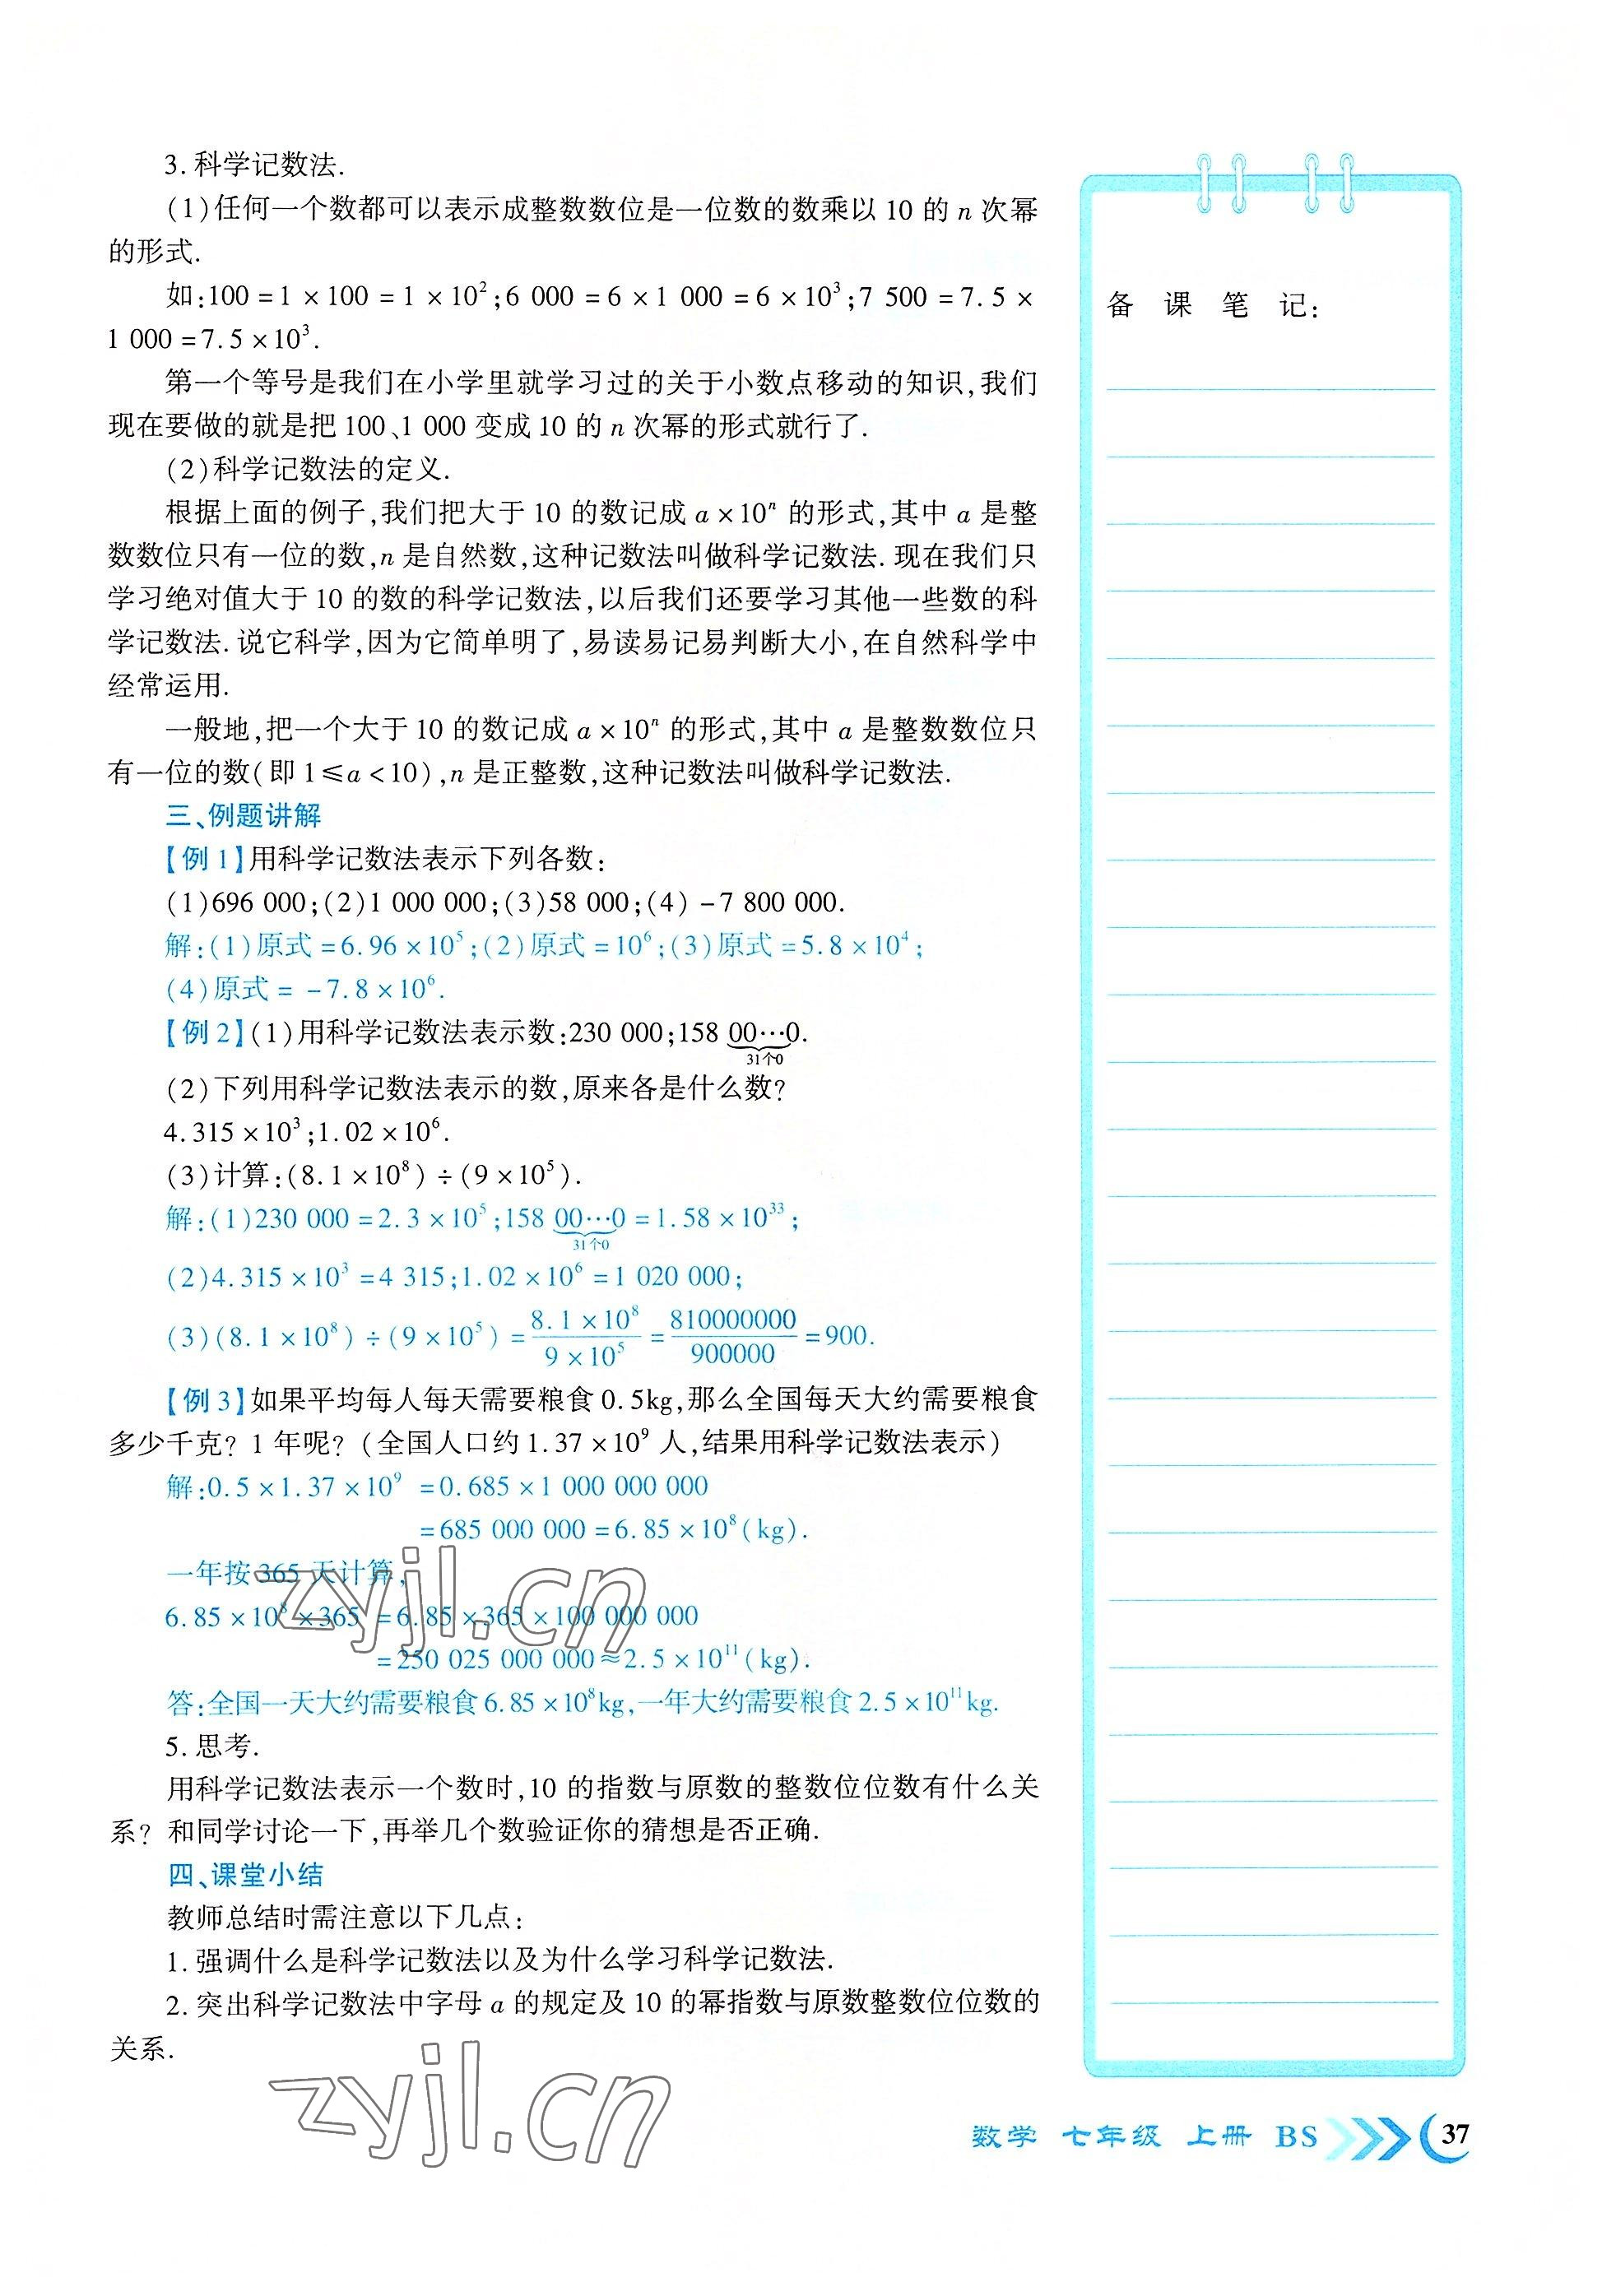 3. 科学记数法.
(1)任何一个数都可以表示成整数数位是一位数的数乘以 10 的 n 次幂
的形式.
如:100 = 1 × 100 = 1 × 10²;6 000 = 6 × 1 000 = 6 × 10³;7 500 = 7. 5 ×
1 000 = 7. 5 × 10³.
第一个等号是我们在小学里就学习过的关于小数点移动的知识,我们
现在要做的就是把 100、1 000 变成 10 的 n 次幂的形式就行了.
(2)科学记数法的定义.
根据上面的例子,我们把大于 10 的数记成 a × 10ⁿ 的形式,其中 a 是整
数数位只有一位的数,n 是自然数,这种记数法叫做科学记数法. 现在我们只
学习绝对值大于 10 的数的科学记数法,以后我们还要学习其他一些数的科
学记数法. 说它科学,因为它简单明了,易读易记易判断大小,在自然科学中
经常运用.
一般地,把一个大于 10 的数记成 a × 10ⁿ 的形式,其中 a 是整数数位只
有一位的数(即 1 ≤ a < 10),n 是正整数,这种记数法叫做科学记数法.
三、例题讲解
【例 1】用科学记数法表示下列各数:
(1)696 000;(2)1 000 000;(3)58 000;(4) - 7 800 000.
解:(1)原式 = 6. 96 × 10⁵;(2)原式 = 10⁶;(3)原式 = 5. 8 × 10⁴;
(4)原式 = - 7. 8 × 10⁶.
【例 2】(1)用科学记数法表示数:230 000;158 00…0.
31个0
(2)下列用科学记数法表示的数,原来各是什么数?
4. 315 × 10³;1. 02 × 10⁶.
(3)计算:(8. 1 × 10⁸) ÷ (9 × 10⁵).
解:(1)230 000 = 2. 3 × 10⁵;158 00…0 = 1. 58 × 10³³;
31个0
(2)4. 315 × 10³ = 4 315;1. 02 × 10⁶ = 1 020 000;
(3)(8. 1 × 10⁸) ÷ (9 × 10⁵) = 8. 1 × 10⁸ / 9 × 10⁵ = 810000000 / 900000 = 900.
【例 3】如果平均每人每天需要粮食 0. 5kg,那么全国每天大约需要粮食
多少千克? 1 年呢? (全国人口约 1. 37 × 10⁹ 人,结果用科学记数法表示)
解:0. 5 × 1. 37 × 10⁹ = 0. 685 × 1 000 000 000
= 685 000 000 = 6. 85 × 10⁸(kg).
一年按 365 天计算,
6. 85 × 10⁸ × 365 = 6. 85 × 365 × 100 000 000
= 250 025 000 000 ≈ 2. 5 × 10¹¹(kg).
答:全国一天大约需要粮食 6. 85 × 10⁸kg,一年大约需要粮食 2. 5 × 10¹¹kg.
5. 思考.
用科学记数法表示一个数时,10 的指数与原数的整数位位数有什么关
系? 和同学讨论一下,再举几个数验证你的猜想是否正确.
四、课堂小结
教师总结时需注意以下几点:
1. 强调什么是科学记数法以及为什么学习科学记数法.
2. 突出科学记数法中字母 a 的规定及 10 的幂指数与原数整数位位数的
关系.
备 课 笔 记:
zyjl.cn
zyjl.cn
数学 七年级 上册 BS 37